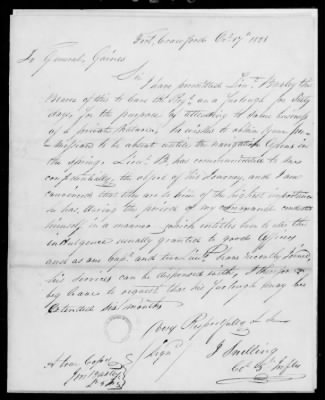 Fort Crawford Oct 17th 1821
To General Gaines
Sir
I have permitted Lieut. Baxley the
bearer of this to leave the Regt. on a furlough for Sixty
days, for the purpose of attending to some business
of a private nature, he wishes to obtain your per-
mission to be absent until the navigation opens in
the spring. Lieut. B. has communicated to me
confidentially, the object of his Journey, and I am
convinced that they are to him of the highest importance
he has, during the period of my command conducted
himself in a manner which entitles him to all the
indulgence usually granted to good Officers
and as one Capt. and two Lieuts. have recently joined,
his services can be dispensed with, I therefore
beg leave to request that his furlough may be
extended six months
Very Respectfully
(Sign) J Snelling
Col. 5th Infty
A true Copy